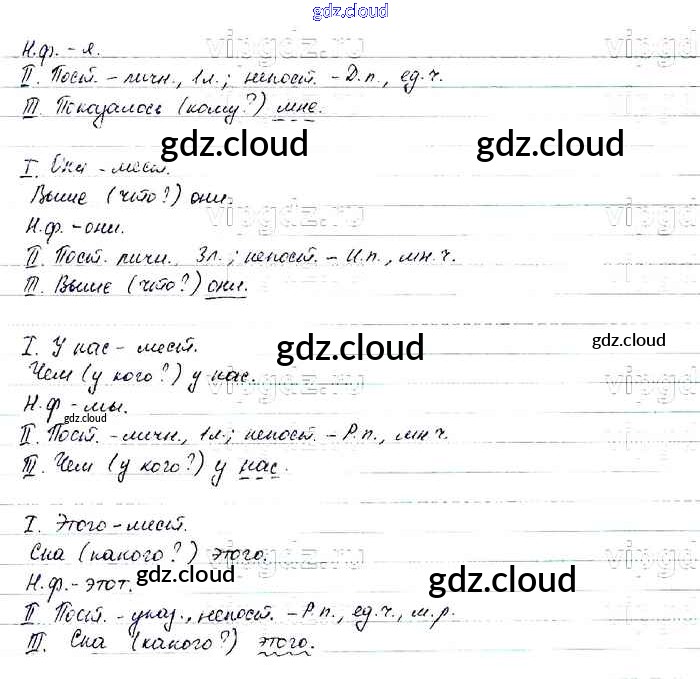 gdz.cloud
Н.ф. - я.
II. Пост. - личн., 1л.; непост. - Д.п., ед.ч.
III. Показалось (кому?) мне.
gdz.cloud gdz.cloud
I. Они - мест.
Выше (что?) они.
Н.ф. - они.
II. Пост. личн. 3л.; непост. - И.п., мн.ч.
III. Выше (что?) они.
I. У нас - мест. gdz.cloud gdz.cloud
Чем (у кого?) у нас.
Н.ф - мы.
gdz.cloud
II. Пост. - личн., 1л.; непост. - Р.п., мн.ч.
III. Чем (у кого?) у нас.
I. Этого - мест.
Сна (какого?) этого.
Н.ф. - этот. gdz.cloud gdz.cloud
II Пост. - указ., непост. - Р.п., ед.ч., м.р.
III. Сна (какого?) этого.